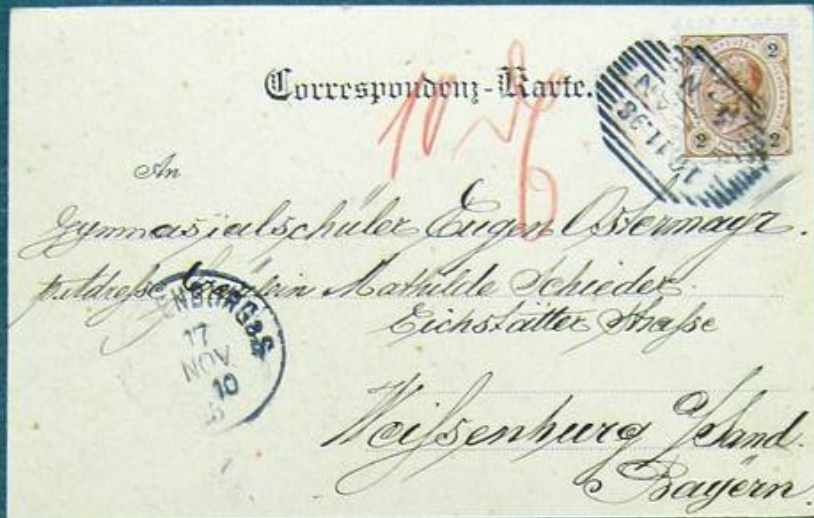 Correspondenz-Karte.
2
2 2
16.11.98
10
An
Gymnasialschüler Eugen Ostermayr.
p. Adresse Fräulein Mathilde Schieder.
Eichstätter Straße
Weissenburg a/Sand.
Bayern.
ENBURG a.S.
17
NOV
10